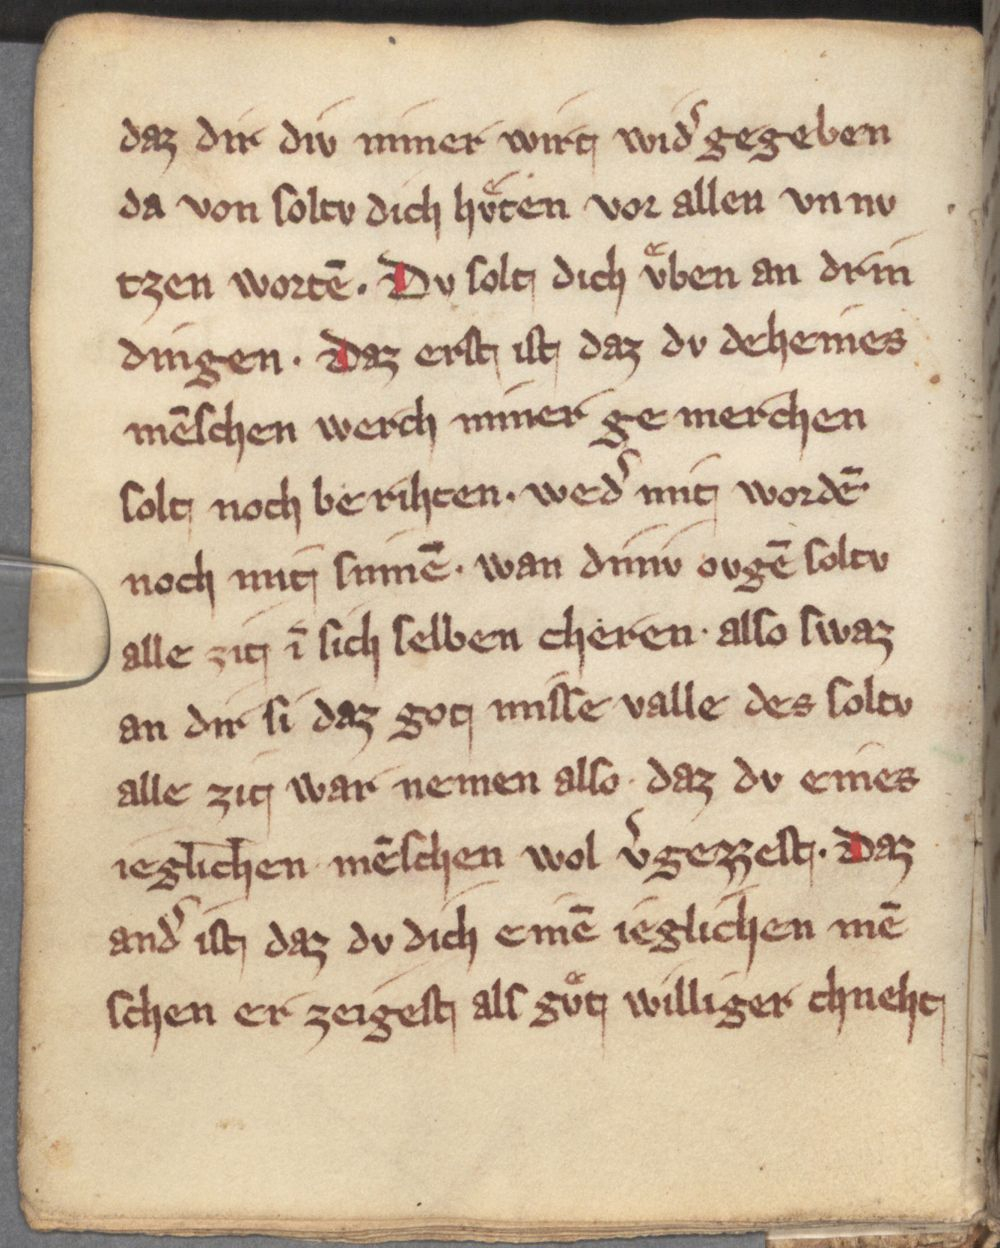 daz dir div nimer wirt wid͛gegeben
da von soltv dich hvͤten vor allen vnnv
tzen wortē. Dv solt dich vͤben an drin
dingen · Daz erst ist daz dv deheines
mēschen werch nimer ge merchen
solt noch be rihten · wed͛ mit wordē
noch mit sinnē · wan diniv ovgē soltv
alle zit ī sich selben cheren · also swaz
an dir si daz got misse valle des soltv
alle zit war nemen also · daz dv eines
ieglichen mēschen wol v͛gezzest · Daz
and͛ ist daz dv dich einē ieglichen mē
schen er zeigest als gvͤt williger chneht